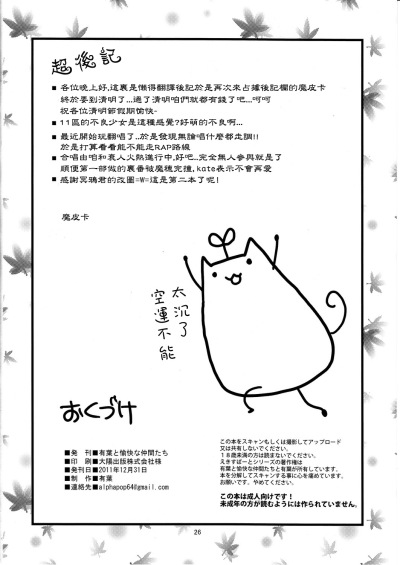 超後記
■ 各位晚上好,這裏是懶得翻譯後記於是再次來占據後記欄的魔皮卡
終於要到清明了...過了清明咱們就都有錢了吧...呵呵
祝各位清明節假期愉快~
■ 11區的不良少女是這種感覺?好萌的不良啊...
■ 最近開始玩翻唱了..於是發現無論唱什麼都走調!!
於是打算看看能不能走RAP路線
■ 合唱由咱和衰人火熱進行中,好吧...完全無人參與就是了
順便第一部做的裏番被魔穗完撞,kate表示不會再愛
■ 感謝冥鴉君的改圖=W=這是第二本了呢!
魔皮卡
太沉了
空運不能
おくづけ
■発 刊 ■有葉と愉快な仲間たち
■印 刷 ■大陽出版株式会社
■発刊日■2011年12月31日
■制 作 ■有葉
■連絡先■alphapop64@gmail.com
この本をスキャンもしくは撮影してアップロード
又は共有しないでください。
18歳未満の方は読まないでください。
えきすぱーとシリーズの著作権は
有葉と愉快な仲間たちと有葉が所有しています。
本を分解してスキャンする事に心を痛めています。
お願いです。やめてください。
この本は成人向けです!
未成年の方が読むようには作られていません。
26